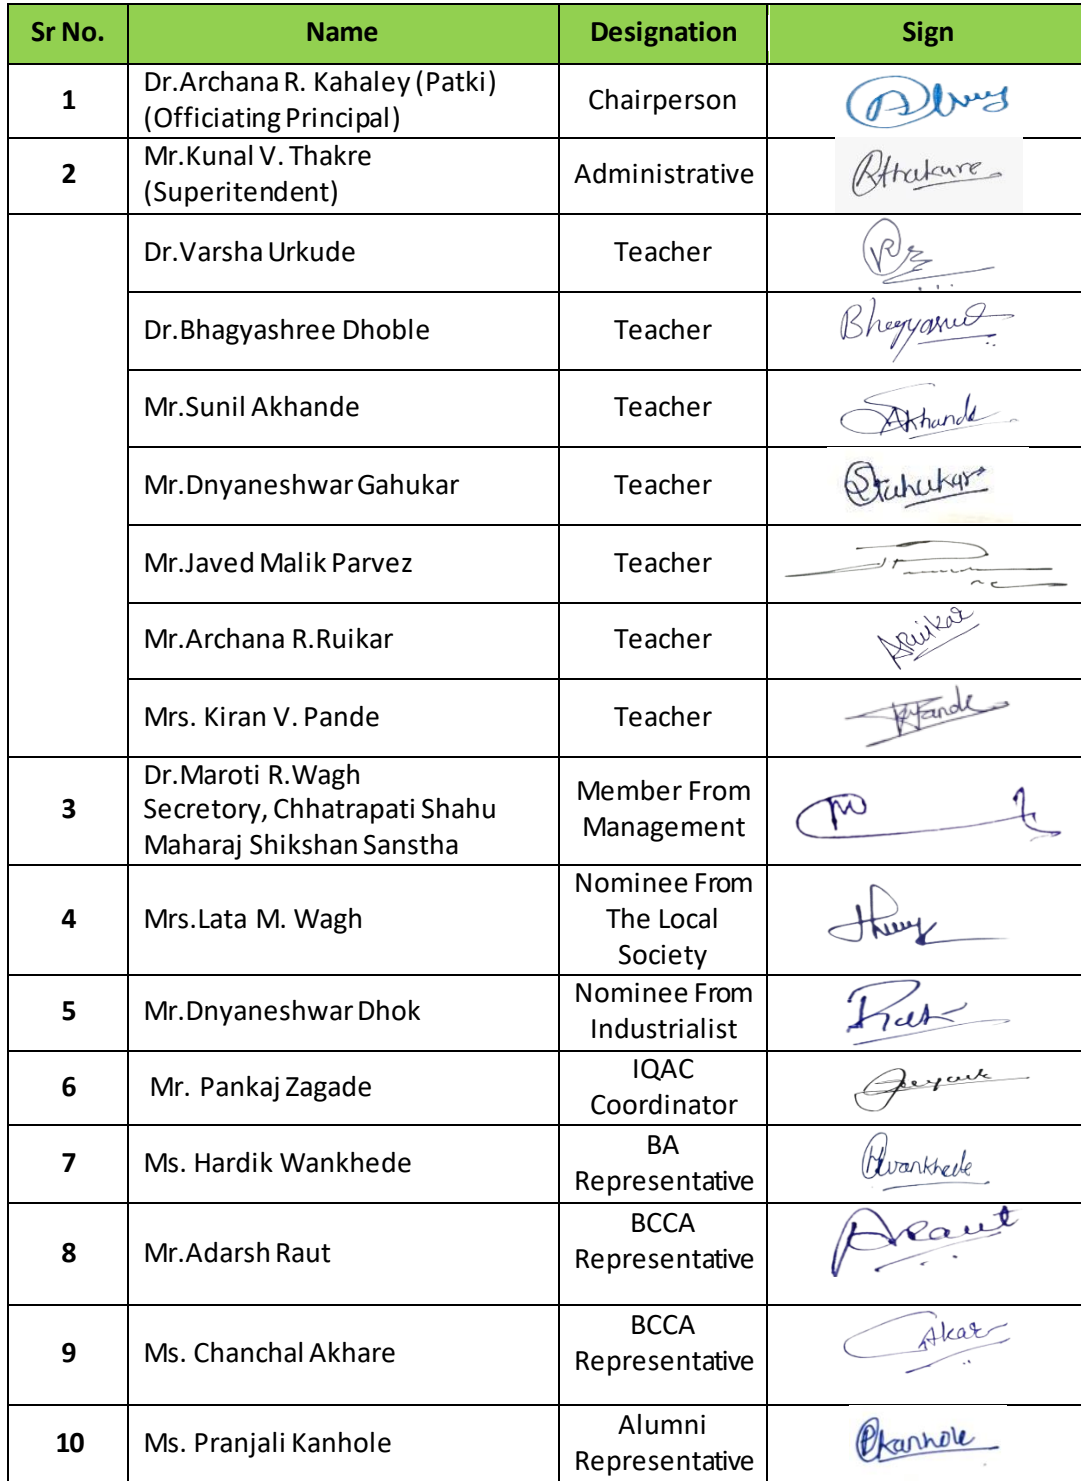 Sr No. Name Designation Sign
1 Dr.Archana R. Kahaley (Patki)
(Officiating Principal) Chairperson
2 Mr.Kunal V. Thakre
(Superitendent) Administrative Rthakure
Dr.Varsha Urkude Teacher
Dr.Bhagyashree Dhoble Teacher
Mr.Sunil Akhande Teacher SAkhande
Mr.Dnyaneshwar Gahukar Teacher
Mr.Javed Malik Parvez Teacher
Mr.Archana R.Ruikar Teacher ARuikar
Mrs. Kiran V. Pande Teacher
3 Dr.Maroti R.Wagh
Secretory, Chhatrapati Shahu
Maharaj Shikshan Sanstha
Member From
Management
4 Mrs.Lata M. Wagh
Nominee From
The Local
Society
5 Mr.Dnyaneshwar Dhok
Nominee From
Industrialist
6 Mr. Pankaj Zagade
IQAC
Coordinator
7 Ms. Hardik Wankhede
BA
Representative
Hwankhede
8 Mr.Adarsh Raut
BCCA
Representative
ARaut
9 Ms. Chanchal Akhare
BCCA
Representative
10 Ms. Pranjali Kanhole
Alumni
Representative
Pkanhole